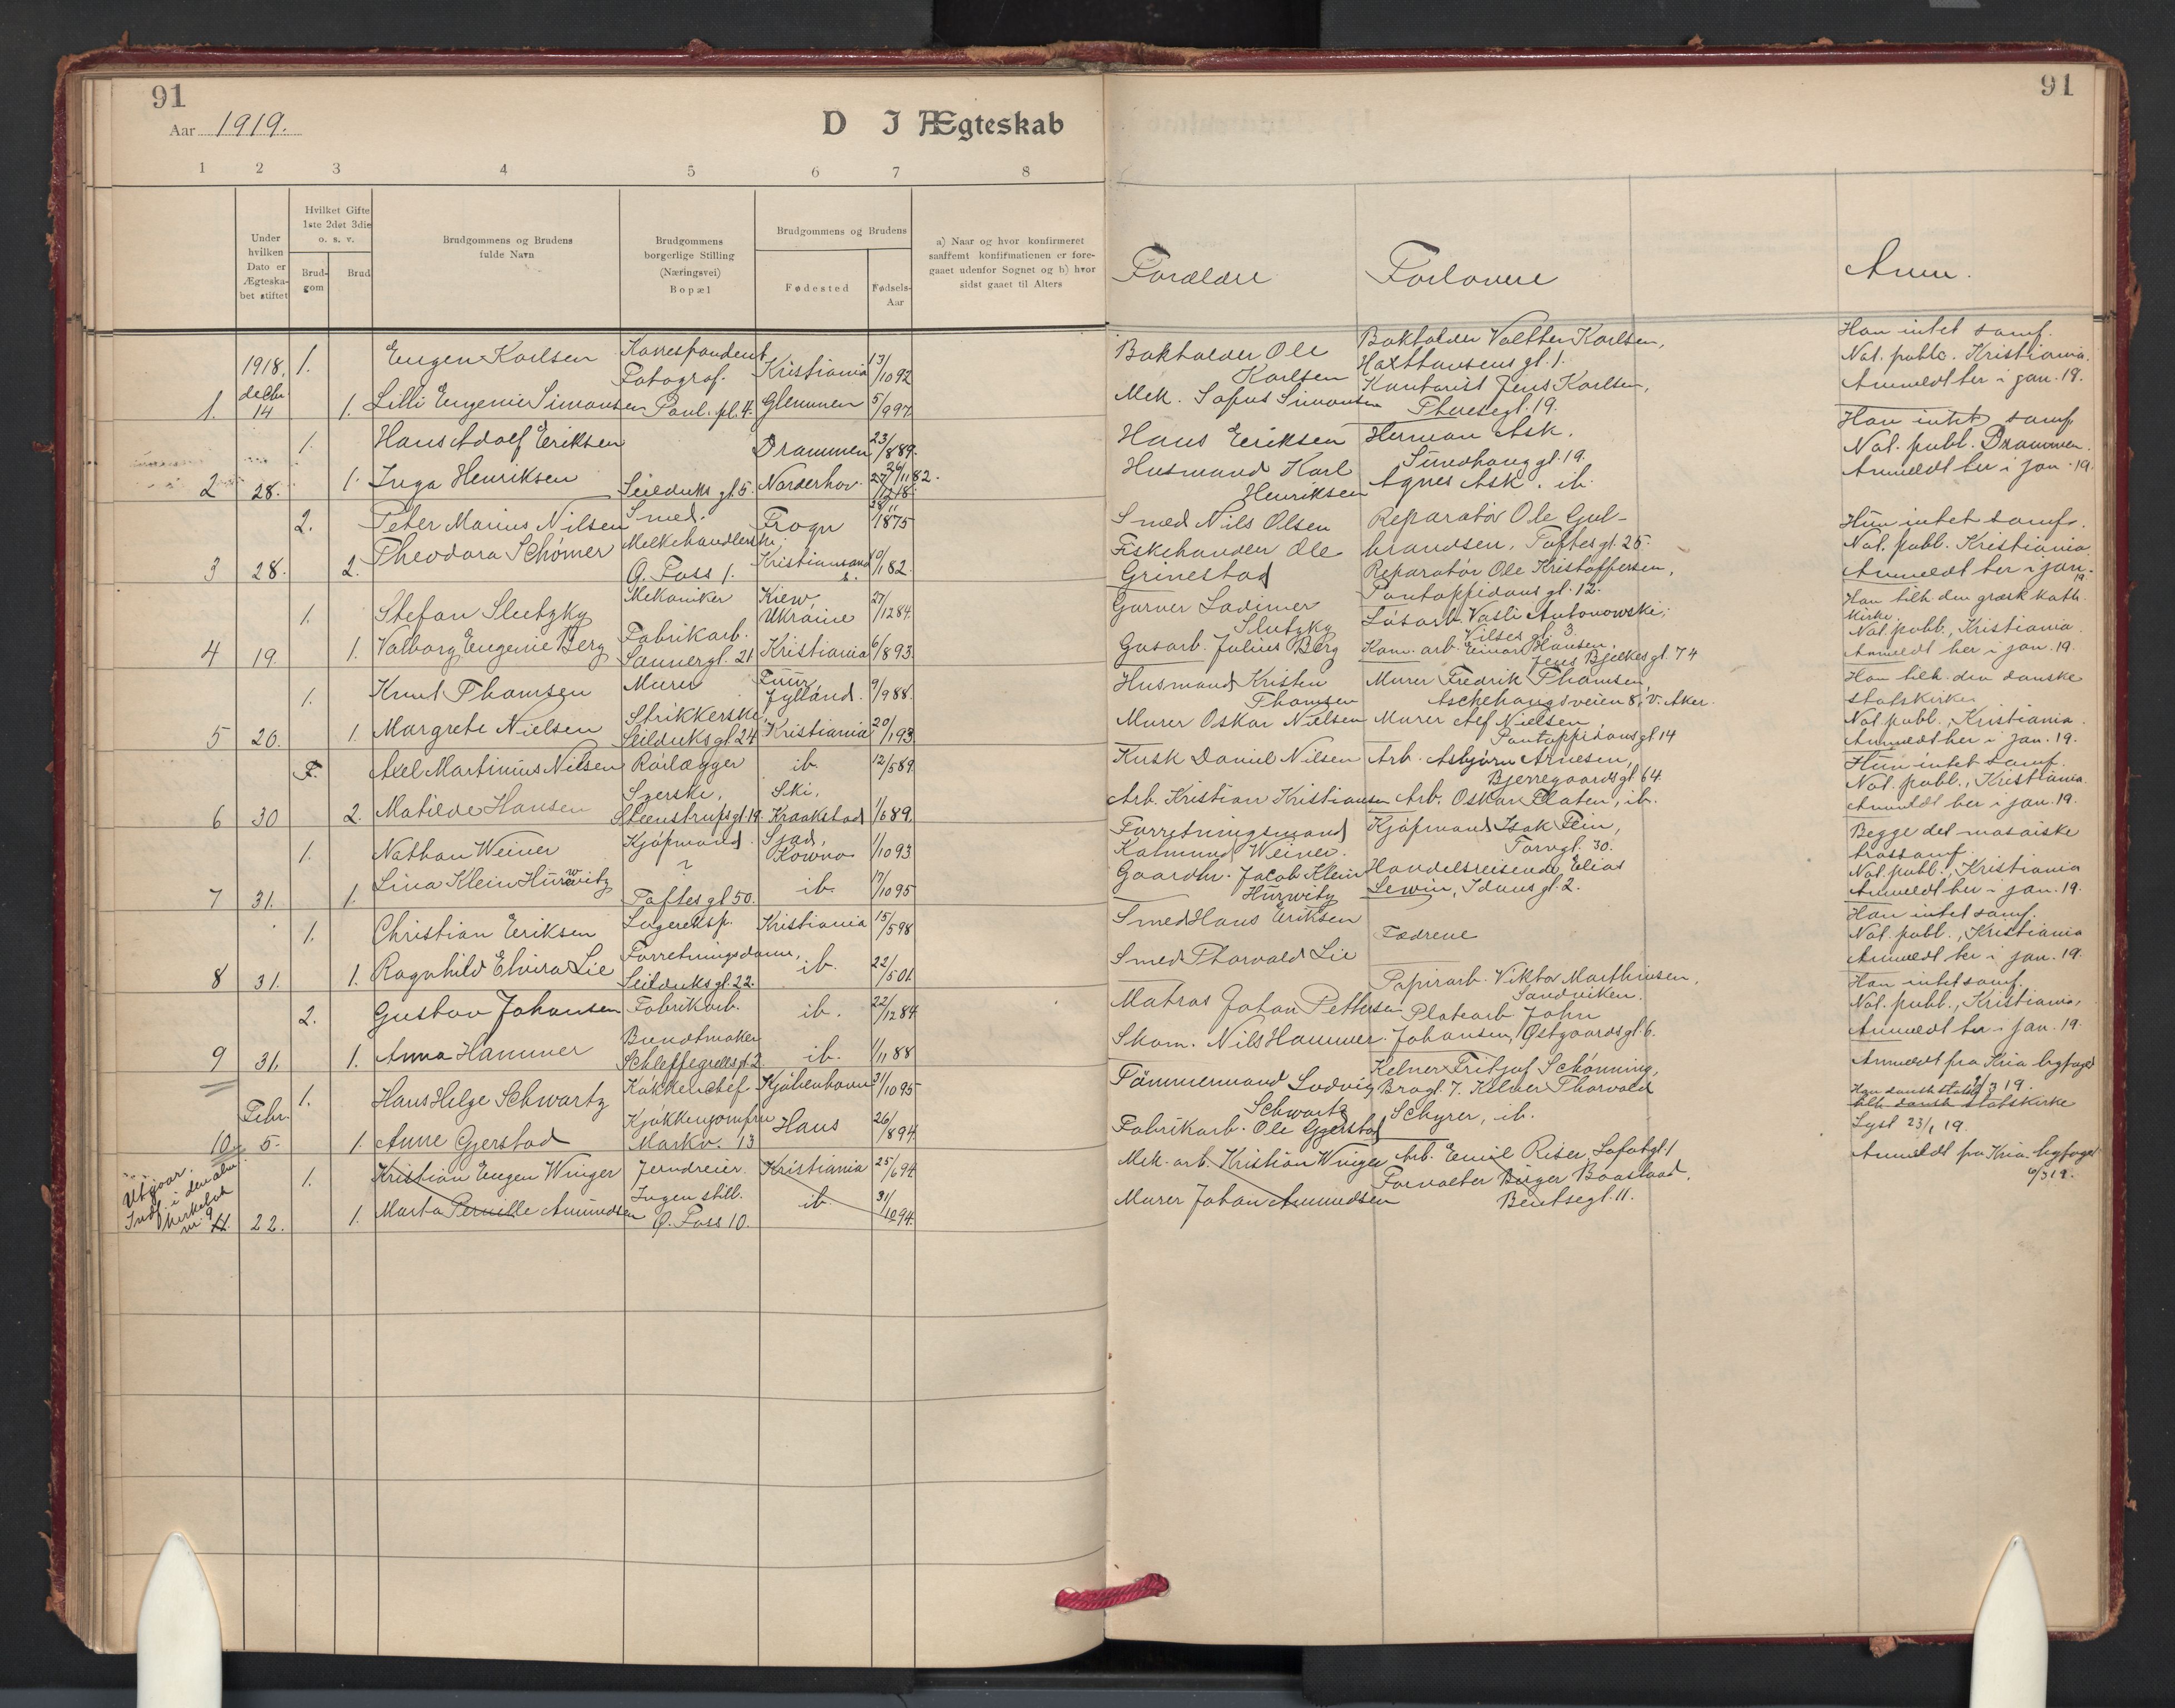 91
91
Aar 1919.
D I Ægteskab
1 2 3 4 5 6 7 8
Under hvilken Dato er Ægteska- bet stiftet
Hvilket Gifte 1ste 2det 3die o. s. v.
Brud- gom
Brud
Brudgommens og Brudens fulde Navn
Brudgommens borgerlige Stilling (Næringsvei) Bopæl
Brudgommens og Brudens
Fødested
Fødsels- Aar
a) Naar og hvor konfirmeret saafremt konfirmationen er fore- gaaet udenfor Sognet og b) hvor sidst gaaet til Alters
Forældre
Forlovere
Anm.
1918, 1. Eugen Karlsen Korrespondent Kristiania 13/10 92
1. decbr 14 1. Lilli Eugenie Simonsen Fotograf. Paul. pl. 4. Glemmen 5/9 97
Bokholder Ole Karlsen
Mek. Sofus Simonsen
Bokholder Valther Karlsen,
Haxthausens gt. 1.
Kontorist Jens Karlsen,
Theresegt. 19.
Han intet samf.
Not. publ. Kristiania.
Anmeldt her i jan. 19.
1. Hans Adolf Eriksen Drammen 23/8 89.
2 28. 1. Inga Henriksen Seilduks gt. 5. Norderhov 26/11 82.
Hans Eriksen
Husmand Karl Henriksen
Herman Ask.
Smedhaug gt. 19.
Agnes Ask. ib.
Han intet samf
Not. publ. Drammen.
Anmeldt her i jan. 19.
2. Peter Marius Nilsen Smed. Frogn 1875
3 28. 2. Theodora Schömer Melkehandlerske. O. Foss 1. Kristiansand s. 10/1 82.
Smed Nils Olsen
Fiskehandler Ole
Grinestad
Reparatör Ole Gul-
brandsen, Toftes gt. 25.
Reparatör Ole Kristoffersen,
Pontoppidans gt. 12.
Hun intet samf.
Not. publ. Kristiania.
Anmeldt her i jan. 19
1. Stefan Slutzky Mekaniker Kiew, Ukraine 27/12 84.
4 19. 1. Valborg Eugenie Berg Fabrikarb. Sannergt. 21 Kristiania 6/8 93.
Garver Ladimer Slutzky
Gasarb. Julius Berg
Lösarb. Vasli Antonowski,
Vilses gt. 3.
Kom. arb. Einar Hansen,
Jens Bjelkes gt. 74
Han tilh. den græsk kath.
kirke.
Not. publ., Kristiania.
Anmeldt her i jan. 19.
1. Knut Thomsen Murer Fuur, Jylland. 9/9 88.
5 20. 1. Margrete Nielsen Strikkerske, Seilduks gt. 24 Kristiania 20/1 93
Husmand Kristen Thomsen
Murer Oskar Nielsen
Murer Fredrik Thomsen
Aschehougsveien 8, V. Aker.
Murer Alf Nielsen,
Pontoppidans gt 14
Han tilh. den danske
statskirke.
Not. publ., Kristiania.
Anmeldt her i jan. 19.
F. Axel Martinius Nilsen Rörlægger ib. 12/5 89.
6 30 2. Matilde Hansen Syerske, Steenstrups gt. 19. Ski, Kraakstad 1/6 89.
Kusk Daniel Nilsen
Arb. Kristian Kristiansen
Arb. Asbjörn Arnesen,
Bjerregaards gt 64.
Arb. Oskar Platen, ib.
Hun intet samf.
Not. publ., Kristiania.
Anmeldt her i jan. 19.
1. Nathan Weiner Kjöpmand Sjad, Kowno 1/10 93
7 31. 1. Lina Klein Hurwitz ? Toftes gt 50. ib. 17/10 95
Forretningsmand
Kalmund Weiner.
Gaardbr. Jacob Klein Hurwitz
Kjöpmand Isak Fein,
Torvgt. 30.
Handelsreisende Elias
Lewin, Idunsgt. 2.
Begge det mosaiske
trossamf.
Not. publ., Kristiania
Anmeldt her i jan. 19.
1. Christian Eriksen Lagereksp. Kristiania 15/5 98
8 31. 1. Ragnhild Elvira Lie Forretningsdame, Seilduks gt. 22. ib. 22/5 01.
Smed Hans Eriksen
Smed Thorvald Lie
Fædrene
Han intet samf.
Not. publ., Kristiania
Anmeldt her i jan. 19.
2. Gustav Johansen Fabrikarb. ib. 22/12 84
9 31. 1. Anna Hammer Buntmaker Schleppegrells gt. 2 ib. 1/11 88
Matros Johan Pettersen
Skom. Nils Hammer.
Papirarb. Viktor Marthinsen,
Sandviken.
Platearb John
Johansen, Östgaards gt. 6.
Han intet samf.
Not. publ., Kristiania,
Anmeldt her i jan. 19.
1. Hans Helge Schwartz Kökkenchef Kjöbenhavn 31/10 95
10. Febr. 5. 1. Anne Gjerstad Kjökkenjomfru Markv. 13 Haus 26/8 94.
Tömmermand Ludvig Schwartz
Fabrikarb. Ole Gjerstad
Kelner Fritjof Schönning,
Brogt. 7. Kelner Thorvald
Schyrer, ib.
Anmeldt fra Kria byfoged
3 19.
Han dansk statsk.
tilh. dansk statskirke
Lyst 23/1 19.
Utgaar.
Indf. i den alm.
kirkebok
nr. 9
1. Kristian Eugen Winger Jerndreier. Kristiania 25/6 94
11. 22. 1. Marta Pernille Amundsen Ingen still. O. Foss 10. ib. 31/10 94.
Mek. arb. Kristian Winger
Murer Johan Amundsen
Arb. Emil Riser, Lofotgt 1
Forvalter Birger Baastad,
Bentsegt. 11.
Anmeldt fra Kria. byfoged
6/3 19.